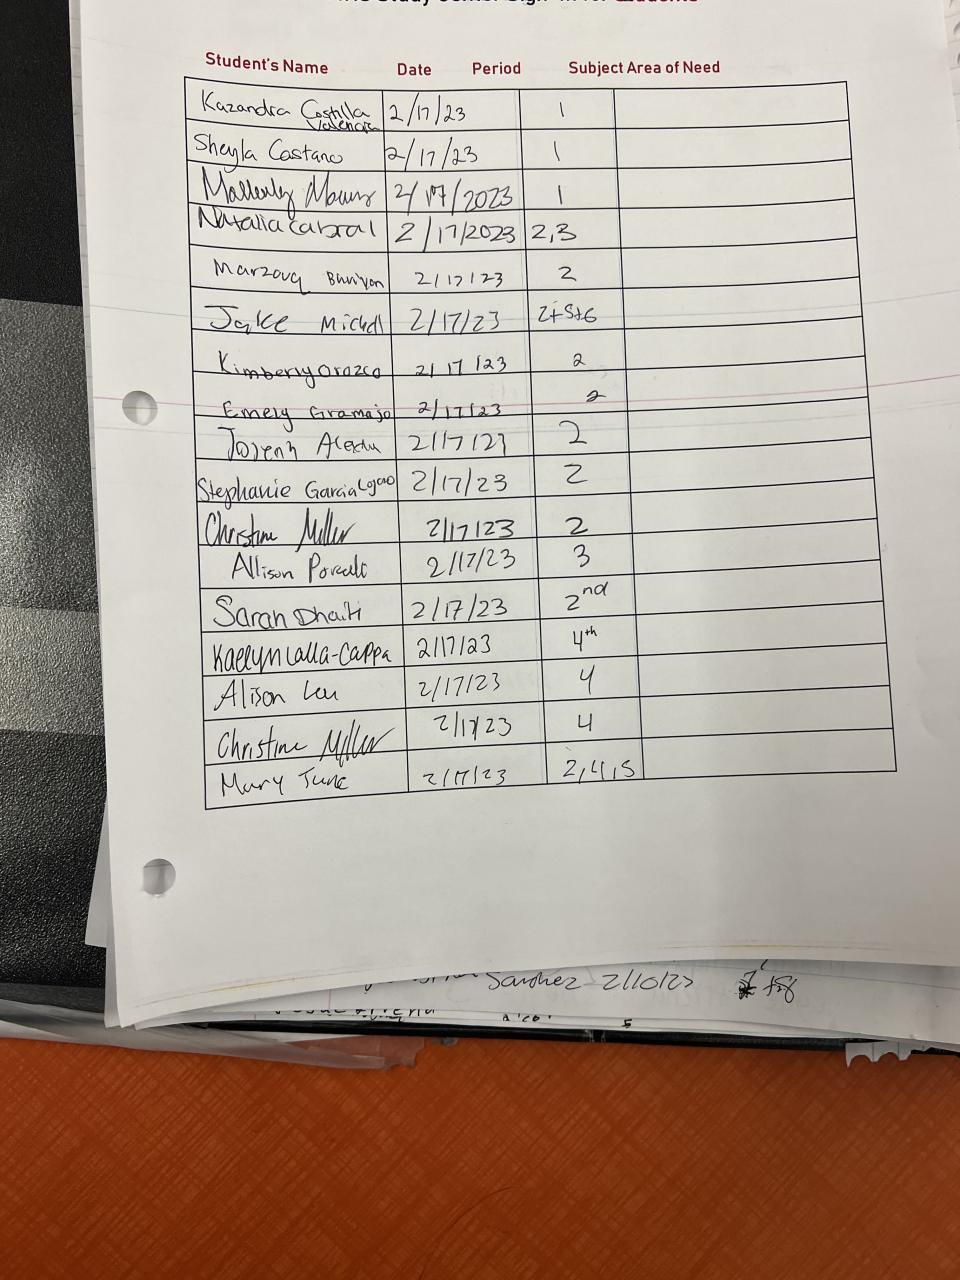 Study Center Sign-in for Students
Student's Name Date Period Subject Area of Need
Kazandra Costilla Valencia 2/17/23 1
Sheyla Castano 2/17/23 1
2/17/2023 1
Natalia Cabral 2/17/2023 2,3
Marzouq 2/17/23 2
Jake Mickell 2/17/23 2+5+6
Kimberly Orozco 2/17/23 2
Emely Gramajo 2/17/23 2
Joseph 2/17/23 2
Stephanie Garcia 2/17/23 2
Christine Miller 2/17/23 2
Allison 2/17/23 3
Sarah Dhaiti 2/17/23 2nd
Kaelyn Calla-Cappa 2/17/23 4th
Alison Leu 2/17/23 4
Christine Miller 2/17/23 4
Mary June 2/17/23 2,4,5
Sanchez 2/10/23